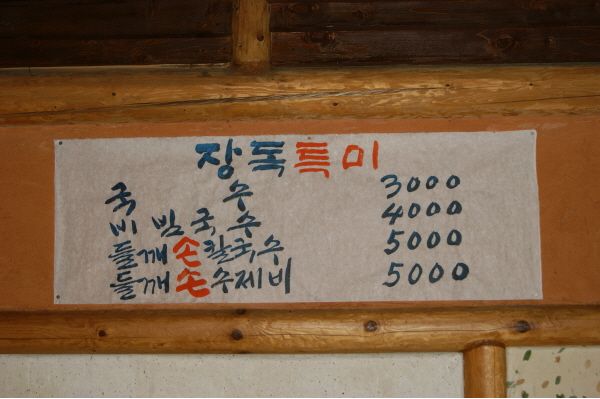 장독특미
국 수 3000
비빔국수 4000
들깨손칼국수 5000
들깨손수제비 5000